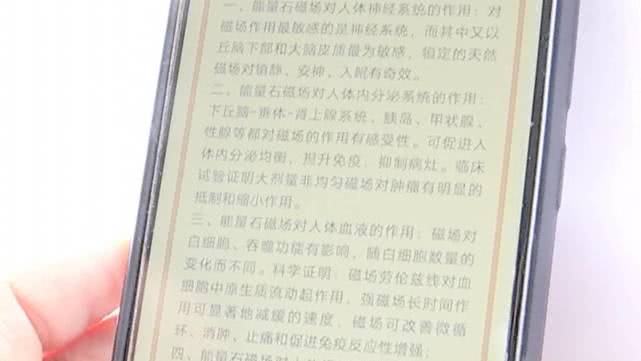 一、能量石磁场对人体神经系统的作用：对
磁场作用最敏感的是神经系统，而其中又以
丘脑下部和大脑皮质最为敏感，锁定的天然
磁场对镇静、安神、入眠有奇效。
二、能量石磁场对人体内分泌系统的作用：
下丘脑-垂体-肾上腺系统、胰岛、甲状腺、
性腺等都对磁场的作用有感受性。可促进人
体内分泌均衡，提升免疫，抑制病灶。临床
试验证明大剂量非均匀磁场对肿瘤有明显的
抵制和缩小作用。
三、能量石磁场对人体血液的作用：磁场对
白细胞、吞噬功能有影响，随白细胞数量的
变化而不同。科学证明：磁场劳伦兹线对血
细胞中原生质流动起作用，强磁场长时间作
用可显著地减缓的速度，磁场可改善微循
环、消肿，止痛和促进免疫反应性增强；
四、能量石磁场对人